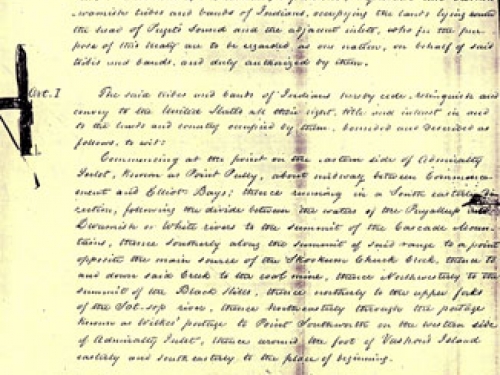 -wamish tribes and bands of Indians, occupying the lands lying round
the head of Pugets Sound and the adjacent inlets, who for the pur-
pose of this treaty are to be regarded as one nation, on behalf of said
tribes and bands, and duly authorized by them.
Art. I The said tribes and bands of Indians hereby cede, relinquish and
convey to the United States all their right, title and interest in and
to the lands and country occupied by them, bounded and described as
follows, to wit:
Commencing at the point on the eastern side of Admiralty
Inlet, known as Point Pully, about midway between Commence-
ment and Elliott Bays; thence running in a South easterly di-
rection, following the divide between the waters of the Puyallup and
Dwamish or White rivers to the summit of the Cascade Moun-
tains, thence Southerly along the summit of said range to a point
opposite the main source of the Skookum Chuck Creek, thence to
and down said Creek to the coal mine, thence Northwesterly to the
summit of the Black Hills, thence northerly to the upper forks
of the Sat-sop river, thence Northeasterly through the portage
known as Wilkes' portage to Point Southworth on the western side
of Admiralty Inlet, thence around the foot of Vashons Island
easterly and southeasterly to the place of beginning.